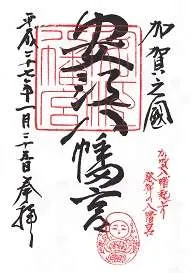 加賀之國
安江八幡宮
平成二十七年一月二十五日奉拝
加賀八幡起上り
発祥の八幡宮